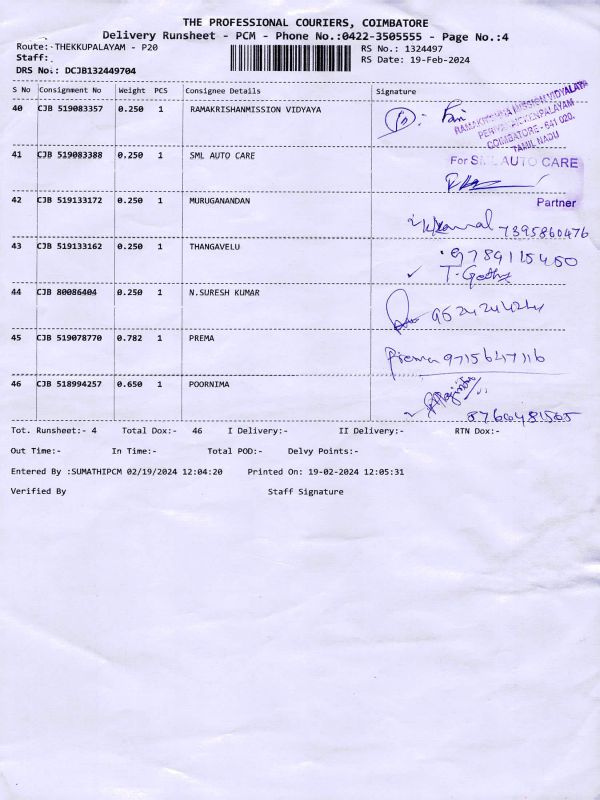 THE PROFESSIONAL COURIERS, COIMBATORE
Delivery Runsheet - PCM - Phone No.:0422-3505555 - Page No.:4
Route: THEKKUPALAYAM - P20 RS No.: 1324497
Staff: RS Date: 19-Feb-2024
DRS No.: DCJB132449704
S No Consignment No Weight PCS Consignee Details Signature
40 CJB 519083357 0.250 1 RAMAKRISHANMISSION VIDYAYA
RAMAKRISHNA MISSION VIDYALAYA
PERIYANAICKENPALAYAM
COIMBATORE - 641 020.
TAMIL NADU
41 CJB 519083388 0.250 1 SML AUTO CARE
For SML AUTO CARE
Partner
42 CJB 519133172 0.250 1 MURUGANANDAN
7395860476
43 CJB 519133162 0.250 1 THANGAVELU
9789115450
44 CJB 80086404 0.250 1 N.SURESH KUMAR
45 CJB 519078770 0.782 1 PREMA
Prema 9715647116
46 CJB 518994257 0.650 1 POORNIMA
Tot. Runsheet:- 4 Total Dox:- 46 I Delivery:- II Delivery:- RTN Dox:-
Out Time:- In Time:- Total POD:- Delvy Points:-
Entered By :SUMATHIPCM 02/19/2024 12:04:20 Printed On: 19-02-2024 12:05:31
Verified By Staff Signature